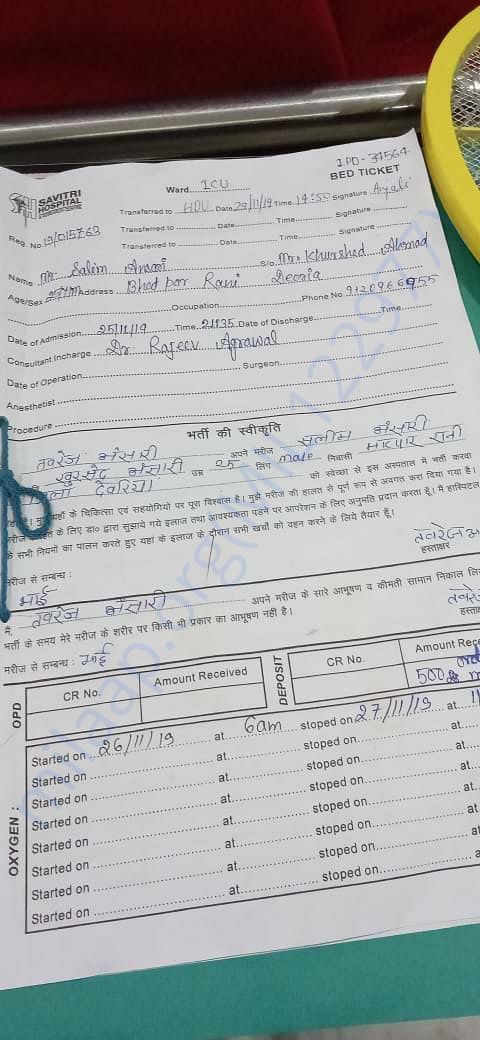 IPD-37564
SAVITRI HOSPITAL
BED TICKET
Ward.....ICU
Transferred to HDU Date 29/11/19 Time 14:50 Signature
Reg. No. 19/015763
Transferred to ........ Date ........ Time ........ Signature ........
Transferred to ........ Date ........ Time ........ Signature ........
Name Mr. Salim Ansari S/o Mr. Khurshed Ahmad
Age/Sex Address Bhat par Rani Deoria
Occupation ........ Phone No 9120966955
Date of Admission 25/11/19 Time 21:35 Date of Discharge ........ Time ........
Consultant Incharge Dr. Rajeev Agrawal
Date of Operation ........ Surgeon ........
Anesthetist ........
Procedure ........
भर्ती की स्वीकृति
तबरेज अंसारी अपने मरीज सलीम अंसारी
खुर्सेद अंसारी उम्र 25 लिंग male निवासी भाटपार रानी
देवरिया को स्वेच्छा से इस अस्पताल में भर्ती करवा
यहाँ के चिकित्सा एवं सहयोगियों पर पूरा विश्वास है। मुझे मरीज की हालत से पूर्ण रूप से अवगत करा दिया गया है।
के लिए डा० द्वारा सुझाये गये इलाज तथा आवश्यकता पडने पर आपरेशन के लिए अनुमति प्रदान करता हूँ। मैं हास्पिटल
के सभी नियमों का पालन करते हुए यहां के इलाज के दौरान सभी खर्चो को वहन करने के लिये तैयार हूँ।
हस्ताक्षर
मरीज से सम्बन्ध : भाई
मैं, तबरेज अंसारी अपने मरीज के सारे आभूषण व कीमती सामान निकाल
भर्ती के समय मेरे मरीज के शरीर पर किसी भी प्रकार का आभूषण नही है।
मरीज से सम्बन्ध : भाई
OPD
CR No.
Amount Received
DEPOSIT
CR No.
Amount
OXYGEN :
Started on 26/11/19 at 6am stoped on 27/11/19 at
Started on ........ at ........ stoped on ........ at
Started on ........ at ........ stoped on ........ at
Started on ........ at ........ stoped on ........ at
Started on ........ at ........ stoped on ........ at
Started on ........ at ........ stoped on ........ at
Started on ........ at ........ stoped on ........ at
Started on ........ at ........ stoped on ........